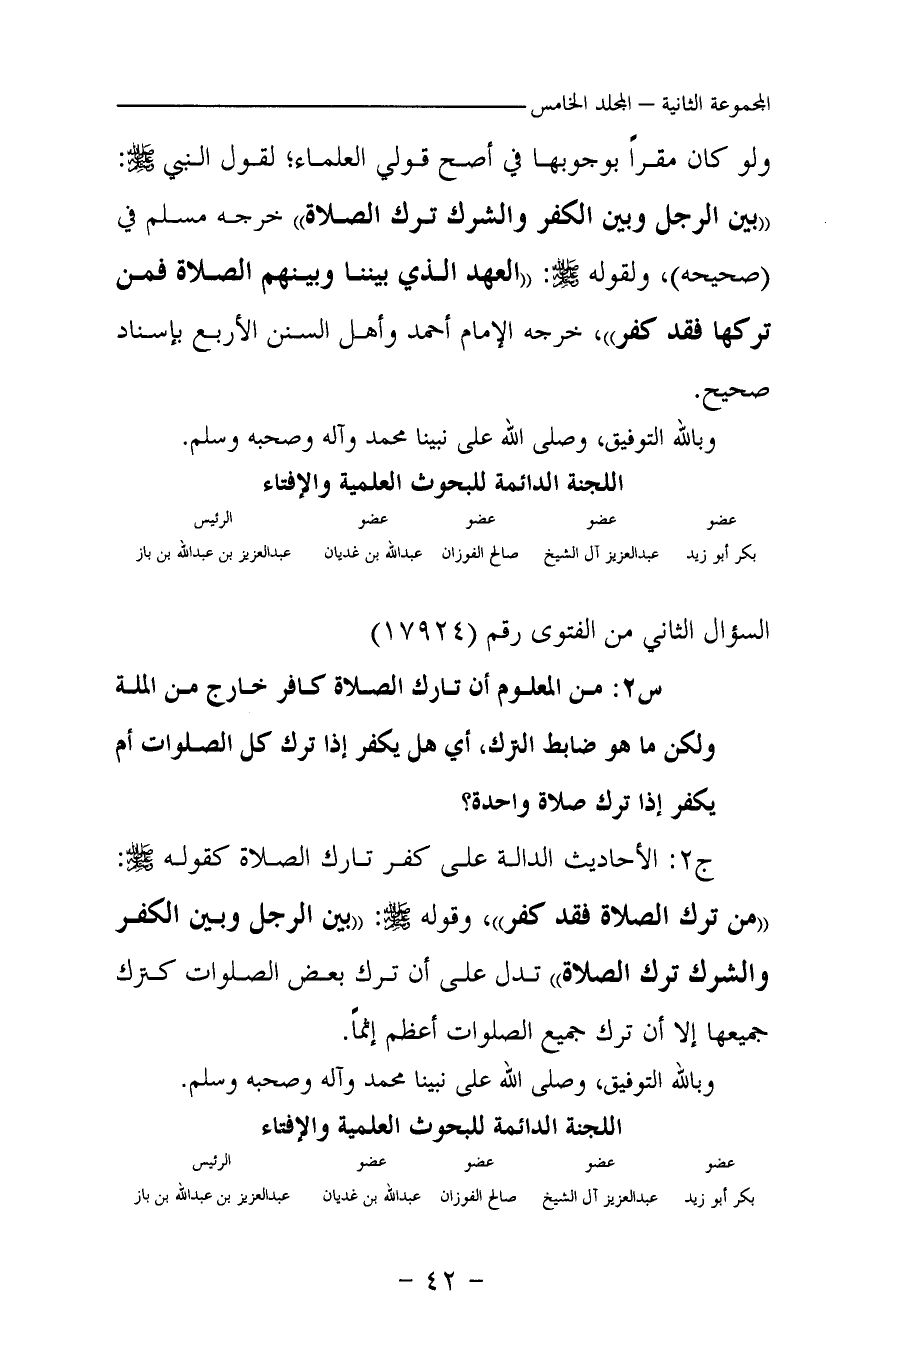 المجموعة الثانية – المجلد الخامس
ولو كان مقراً بوجوبها في أصح قولي العلماء؛ لقول النبي ﷺ:
((بين الرجل وبين الكفر والشرك ترك الصلاة)) خرجه مسلم في
(صحيحه)، ولقوله ﷺ: ((العهد الذي بيننا وبينهم الصلاة فمن
تركها فقد كفر))، خرجه الإمام أحمد وأهل السنن الأربع بإسناد
صحيح.
وبالله التوفيق، وصلى الله على نبينا محمد وآله وصحبه وسلم.
اللجنة الدائمة للبحوث العلمية والإفتاء
عضو عضو عضو عضو الرئيس
بكر أبو زيد عبدالعزيز آل الشيخ صالح الفوزان عبدالله بن غديان عبدالعزيز بن عبدالله بن باز
السؤال الثاني من الفتوى رقم (١٧٩٢٤)
س٢: من المعلوم أن تارك الصلاة كافر خارج من الملة
ولكن ما هو ضابط الترك، أي هل يكفر إذا ترك كل الصلوات أم
يكفر إذا ترك صلاة واحدة؟
ج٢: الأحاديث الدالة على كفر تارك الصلاة كقوله ﷺ:
((من ترك الصلاة فقد كفر))، وقوله ﷺ: ((بين الرجل وبين الكفر
والشرك ترك الصلاة)) تدل على أن ترك بعض الصلوات كترك
جميعها إلا أن ترك جميع الصلوات أعظم إثماً.
وبالله التوفيق، وصلى الله على نبينا محمد وآله وصحبه وسلم.
اللجنة الدائمة للبحوث العلمية والإفتاء
عضو عضو عضو عضو الرئيس
بكر أبو زيد عبدالعزيز آل الشيخ صالح الفوزان عبدالله بن غديان عبدالعزيز بن عبدالله بن باز
– ٤٢ –